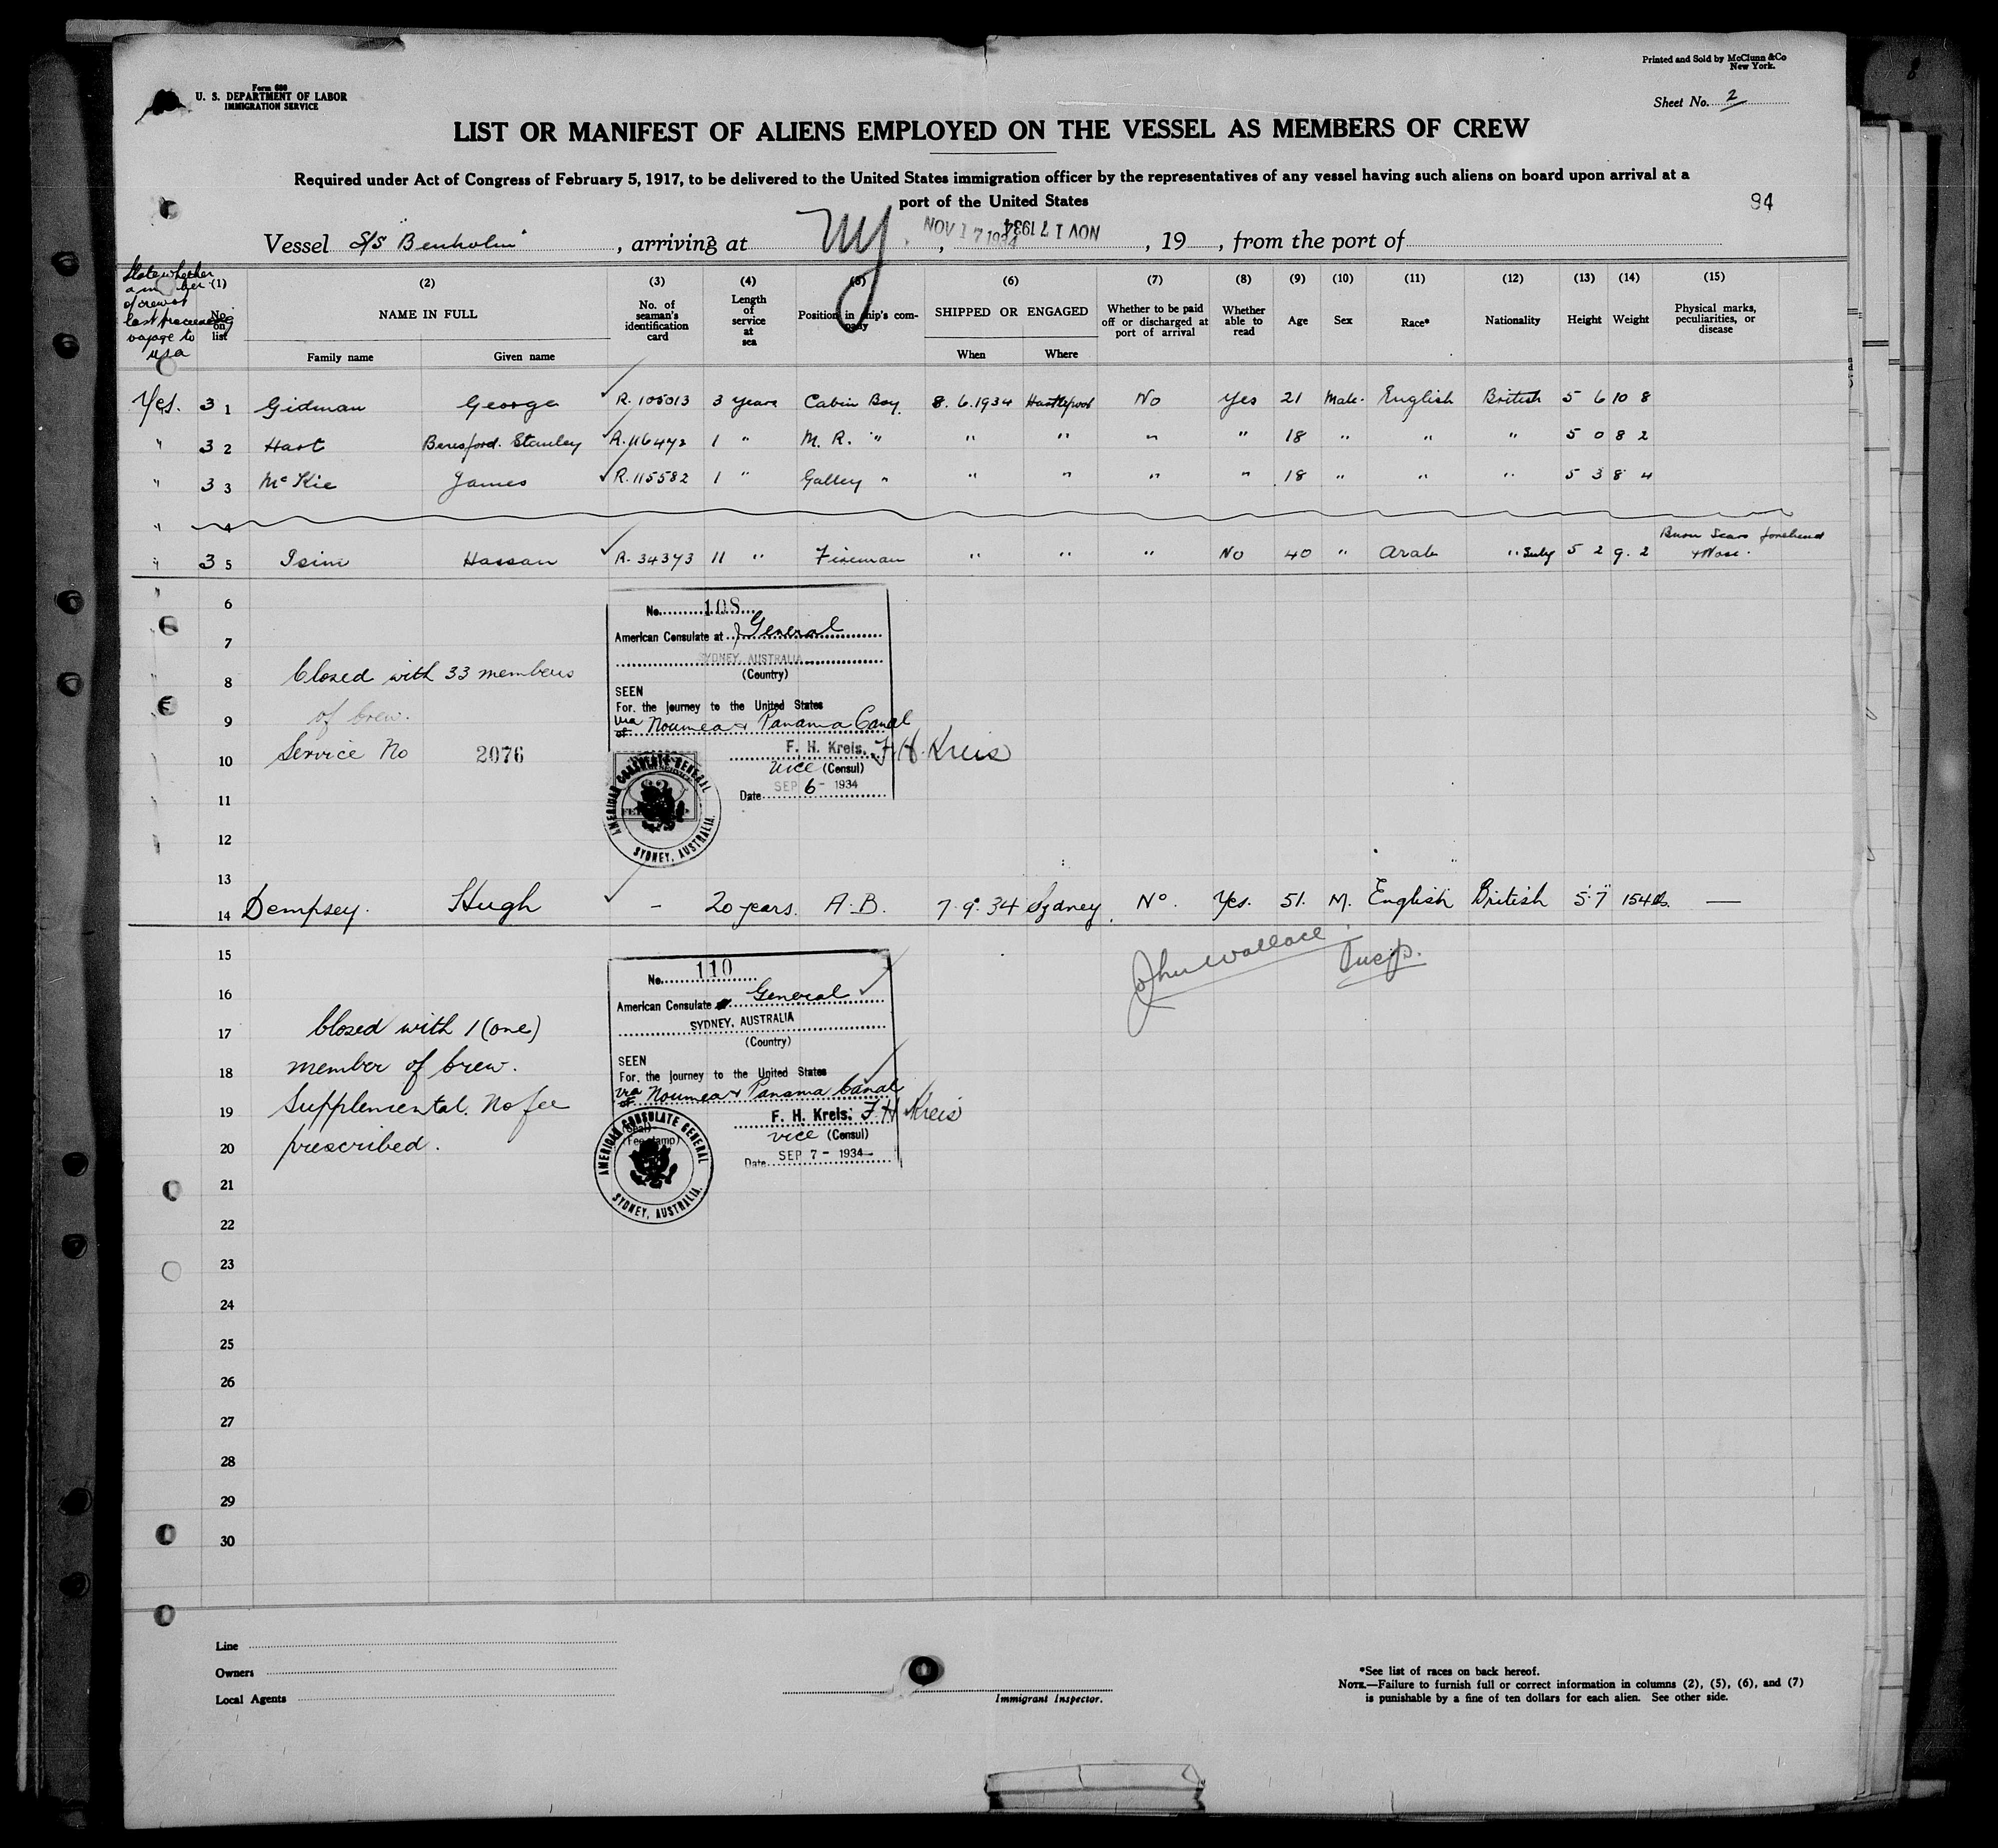 Form 680
U. S. DEPARTMENT OF LABOR
IMMIGRATION SERVICE
Printed and Sold by McClunn & Co
New York.
Sheet No. 2
LIST OR MANIFEST OF ALIENS EMPLOYED ON THE VESSEL AS MEMBERS OF CREW
Required under Act of Congress of February 5, 1917, to be delivered to the United States immigration officer by the representatives of any vessel having such aliens on board upon arrival at a
port of the United States
94
Vessel S/S "Benholm", arriving at NY, NOV 17 1934 NOV 17 1934, 19, from the port of
State whether a member of crew on last preceding voyage to USA
(1) No. on list
(2) NAME IN FULL Family name Given name
(3) No. of seaman's identification card
(4) Length of service at sea
(5) Position in ship's company
(6) SHIPPED OR ENGAGED When Where
(7) Whether to be paid off or discharged at port of arrival
(8) Whether able to read
(9) Age
(10) Sex
(11) Race*
(12) Nationality
(13) Height
(14) Weight
(15) Physical marks, peculiarities, or disease
Yes. 3 1 Gidman George R. 105013 3 years Cabin Boy. 8.6.1934 Hartlepool No Yes 21 Male. English British 5 6 10 8
" 3 2 Hart Beresford. Stanley R. 116472 1 " M. R. " " " " " 18 " " " 5 0 8 2
" 3 3 McKie James R. 115582 1 " Galley " " " " " 18 " " " 5 3 8 4
" 4
" 3 5 Isim Hassan R. 34373 11 " Fireman " " " No 40 " Arab " Subj 5 2 9. 2 Burn Scars forehead + Nose.
6
7
8
9
10
11
12
13
No. 108
American Consulate at General
SYDNEY, AUSTRALIA
(Country)
SEEN
For the journey to the United States
via of Noumea & Panama Canal
F. H. Kreis. F. H. Kreis
vice (Consul)
Date SEP 6 - 1934
AMERICAN CONSULATE GENERAL
SYDNEY, AUSTRALIA.
Closed with 33 members
of Crew.
Service No 2076
14 Dempsey. Hugh - 20 years. A.B. 7.9.34 Sydney. No. Yes. 51. M. English British 5'7" 154 lbs. —
John Wallace. Insp.
15
16
17
18
19
20
No. 110
American Consulate General
SYDNEY, AUSTRALIA
(Country)
SEEN
For the journey to the United States
via of Noumea & Panama Canal
F. H. Kreis. F. H. Kreis
(Seal)
(Fee stamp)
vice (Consul)
Date SEP 7 - 1934
AMERICAN CONSULATE GENERAL
SYDNEY, AUSTRALIA.
Closed with 1 (one)
member of Crew.
Supplemental. No fee
prescribed.
21
22
23
24
25
26
27
28
29
30
Line
Owners
Local Agents
Immigrant Inspector.
*See list of races on back hereof.
NOTE.—Failure to furnish full or correct information in columns (2), (5), (6), and (7)
is punishable by a fine of ten dollars for each alien. See other side.